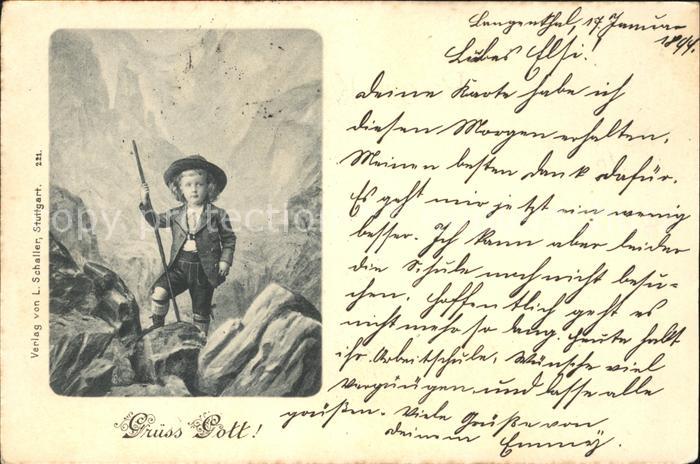 Langenthal, 17. Januar
1899.
Liebes Elsi!
Deine Karte habe ich
diesen Morgen erhalten.
Meinen besten Dank dafür.
Es geht mir jetzt ein wenig
besser. Ich kann aber leider
die Schule noch nicht besu-
chen. Hoffentlich geht es
nicht mehr so lang. Heute habt
ihr Arbeitschule. Wünsche viel
Vergnügen und lasse alle
grüßen. Viele Grüße von
deinem Emmy.
Grüss Gott!
Verlag von L. Schaller, Stuttgart. 221.
copy protection